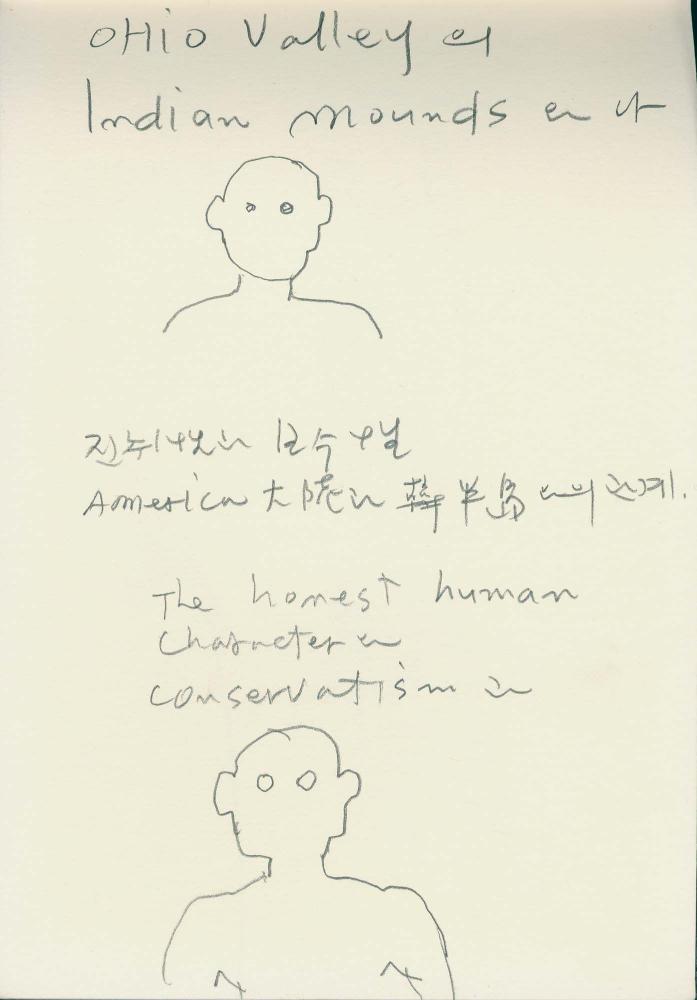 OHio Valley 의
Indian mounds 는 나
보수성
America 大陸과 韓半島 의 관계.
The honest human
character 는
conservatism 는